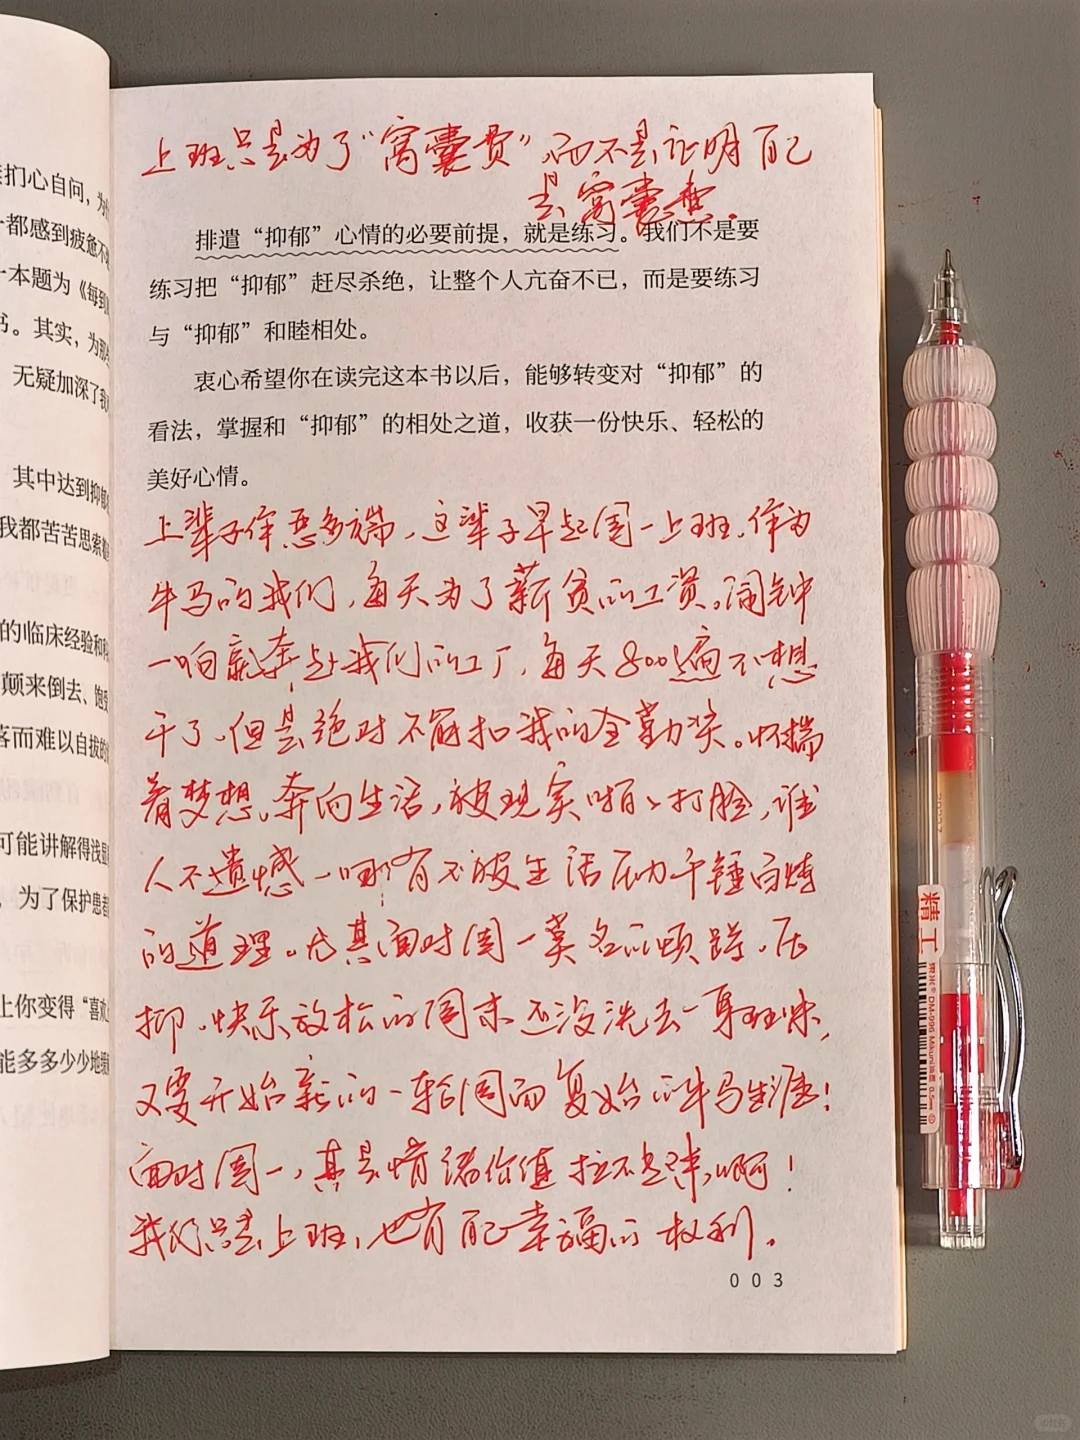 扪心自问，为
都感到疲惫不
本题为《每到
书。其实，为那
无疑加深了我
其中达到抑郁
我都苦苦思索
的临床经验和
颠来倒去、饱受
落而难以自拔的
可能讲解得浅显
，为了保护患者
上你变得“喜欢
能多多少少地缓
上班只是为了“窝囊费”，而不是证明自己
是窝囊费。
排遣“抑郁”心情的必要前提，就是练习。我们不是要
练习把“抑郁”赶尽杀绝，让整个人亢奋不已，而是要练习
与“抑郁”和睦相处。
衷心希望你在读完这本书以后，能够转变对“抑郁”的
看法，掌握和“抑郁”的相处之道，收获一份快乐、轻松的
美好心情。
上辈子作恶多端，这辈子早起周一上班，作为
牛马的我们，每天为了薪贫的工资。闹钟
一响就奔赴我们的工厂，每天800遍不想
干了，但是绝对不能扣我的全勤奖。怀揣
着梦想，奔向生活，被现实啪啪打脸，谁
人不遗憾一哪有不被生活压力千锤百炼
的道理。尤其面对周一莫名的烦躁，压
抑，快乐放松的周末还没洗去一身班味，
又要开始新的一轮周而复始的牛马生涯！
面对周一，真是情绪价值拉不起来啊！
我们只是上班，也有自己幸福的权利。
003
精工
0.5mm